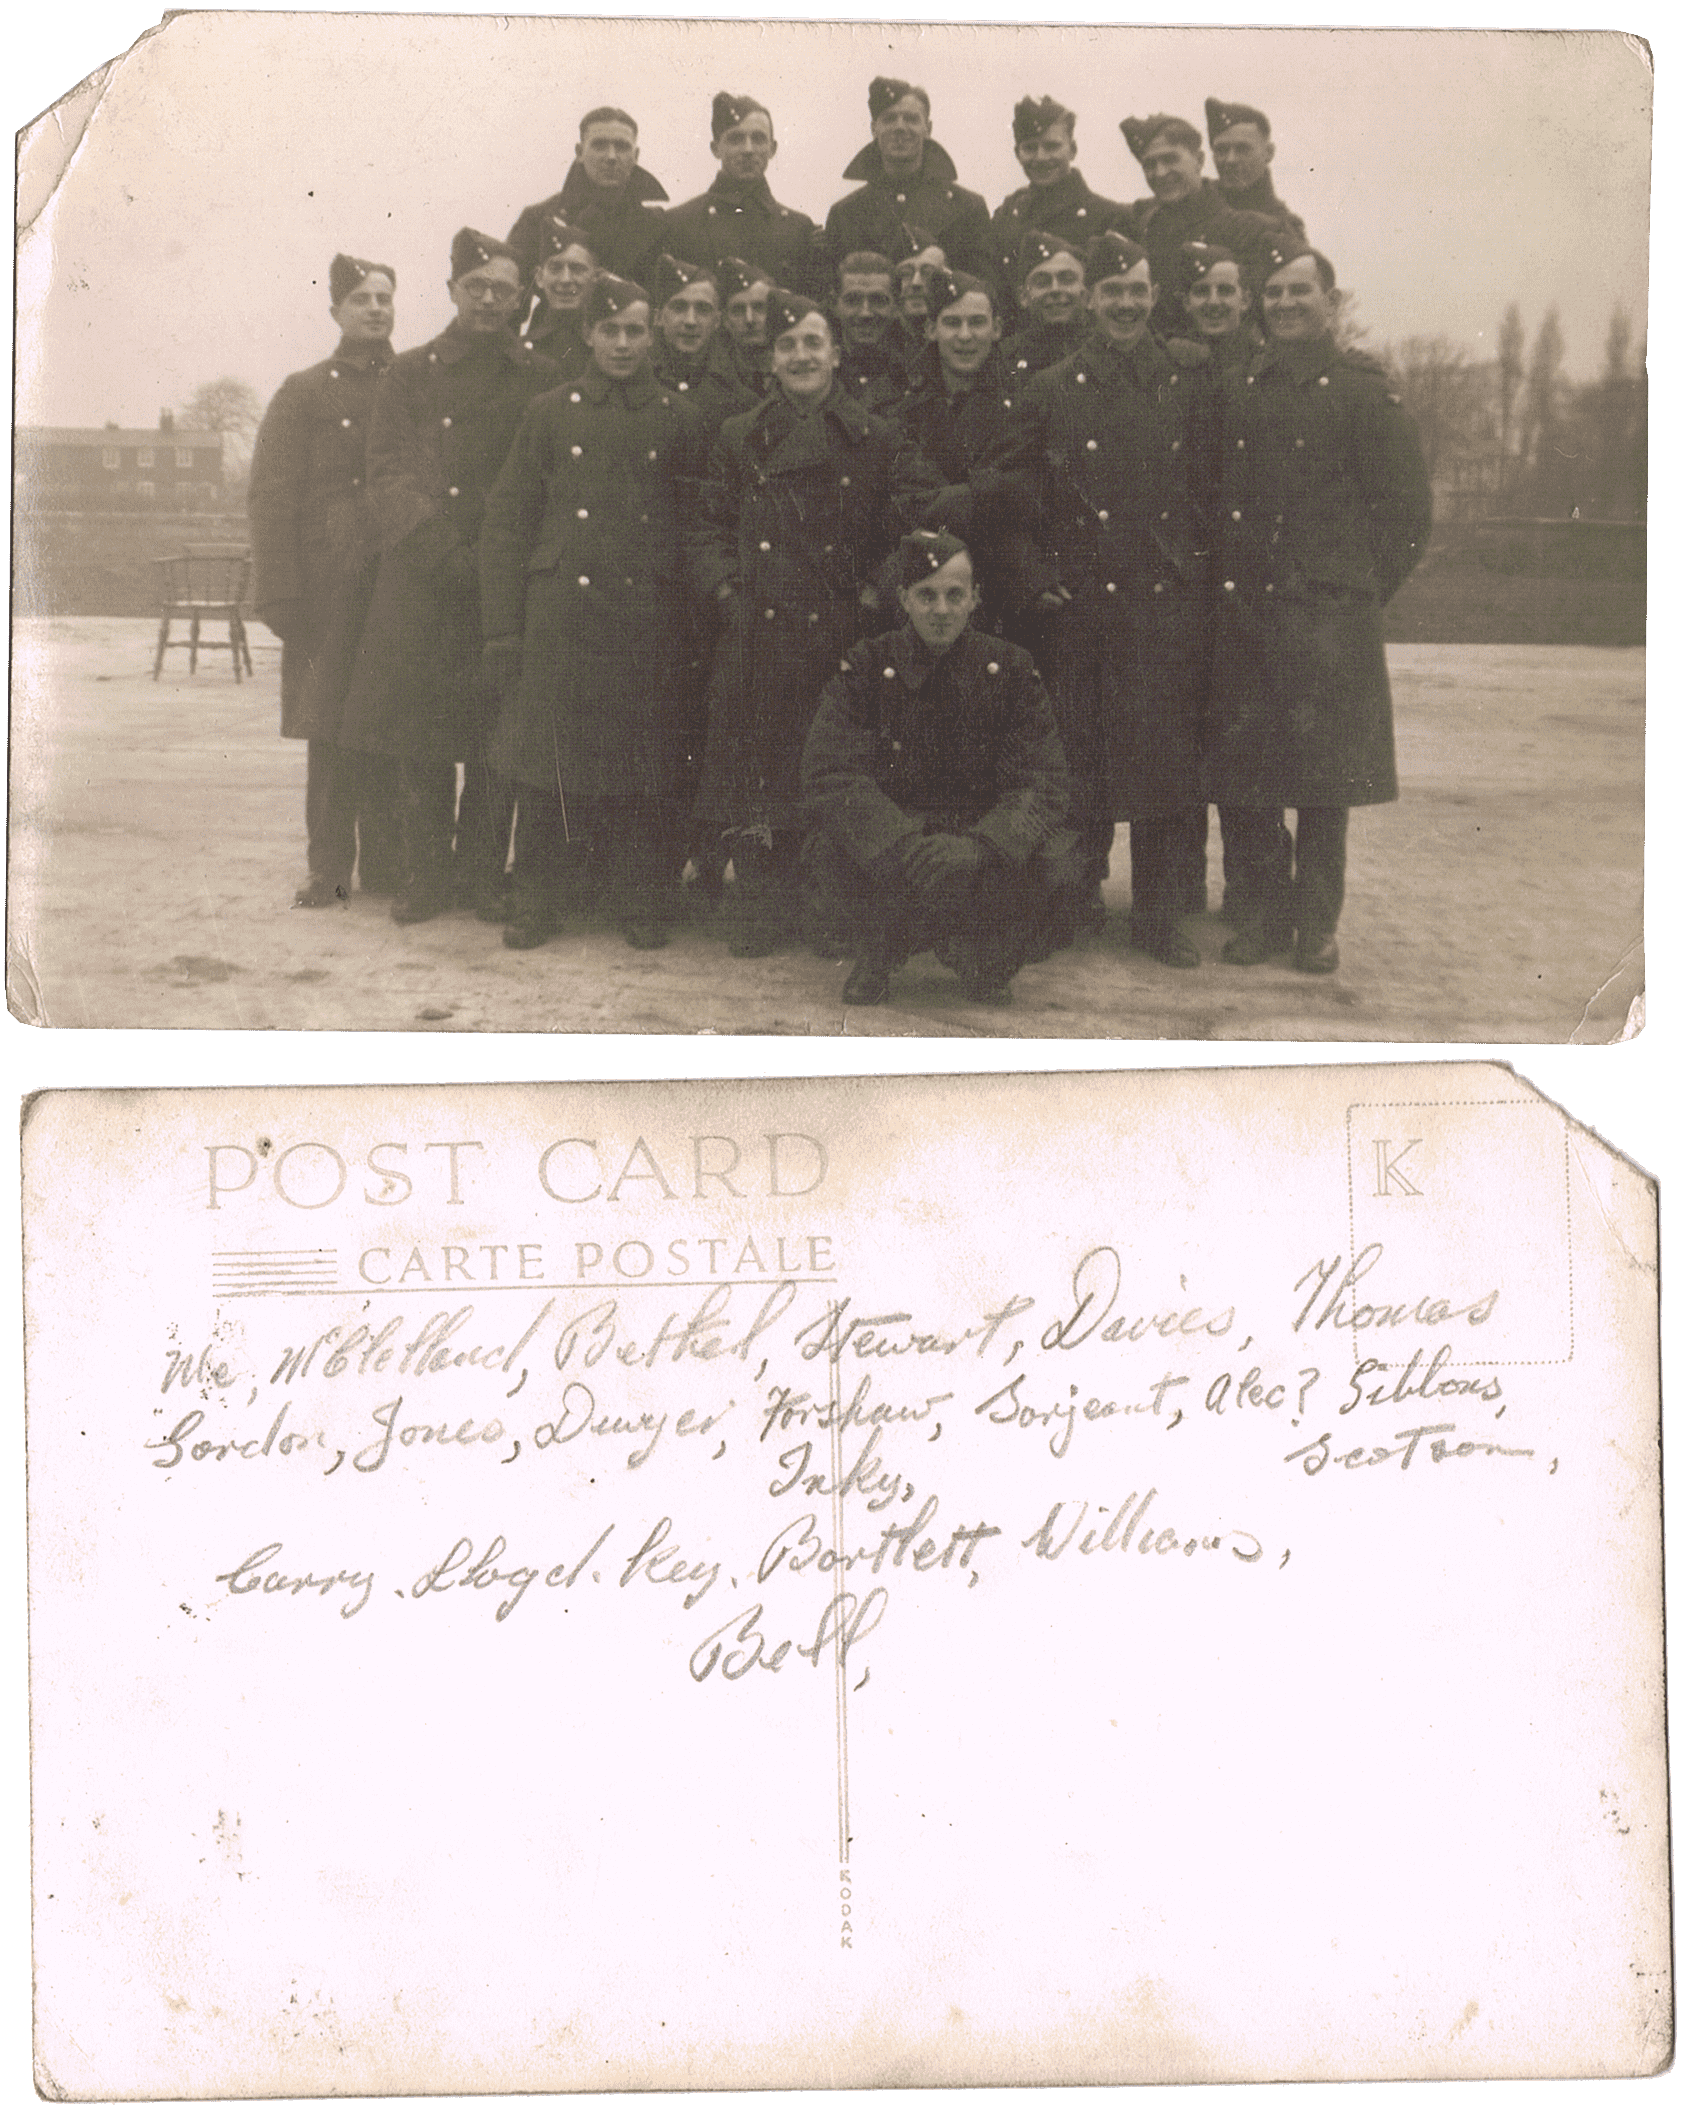 POST CARD
K
CARTE POSTALE
Me, McClelland, Bethel, Stewart, Davies, Thomas
Gordon, Jones, Dwyer, Forshaw, Sorjeant, Alec? Gibbons,
Inky, Scotson,
Curry. Lloyd. Key. Bartlett, Williams,
Bell,
KODAK